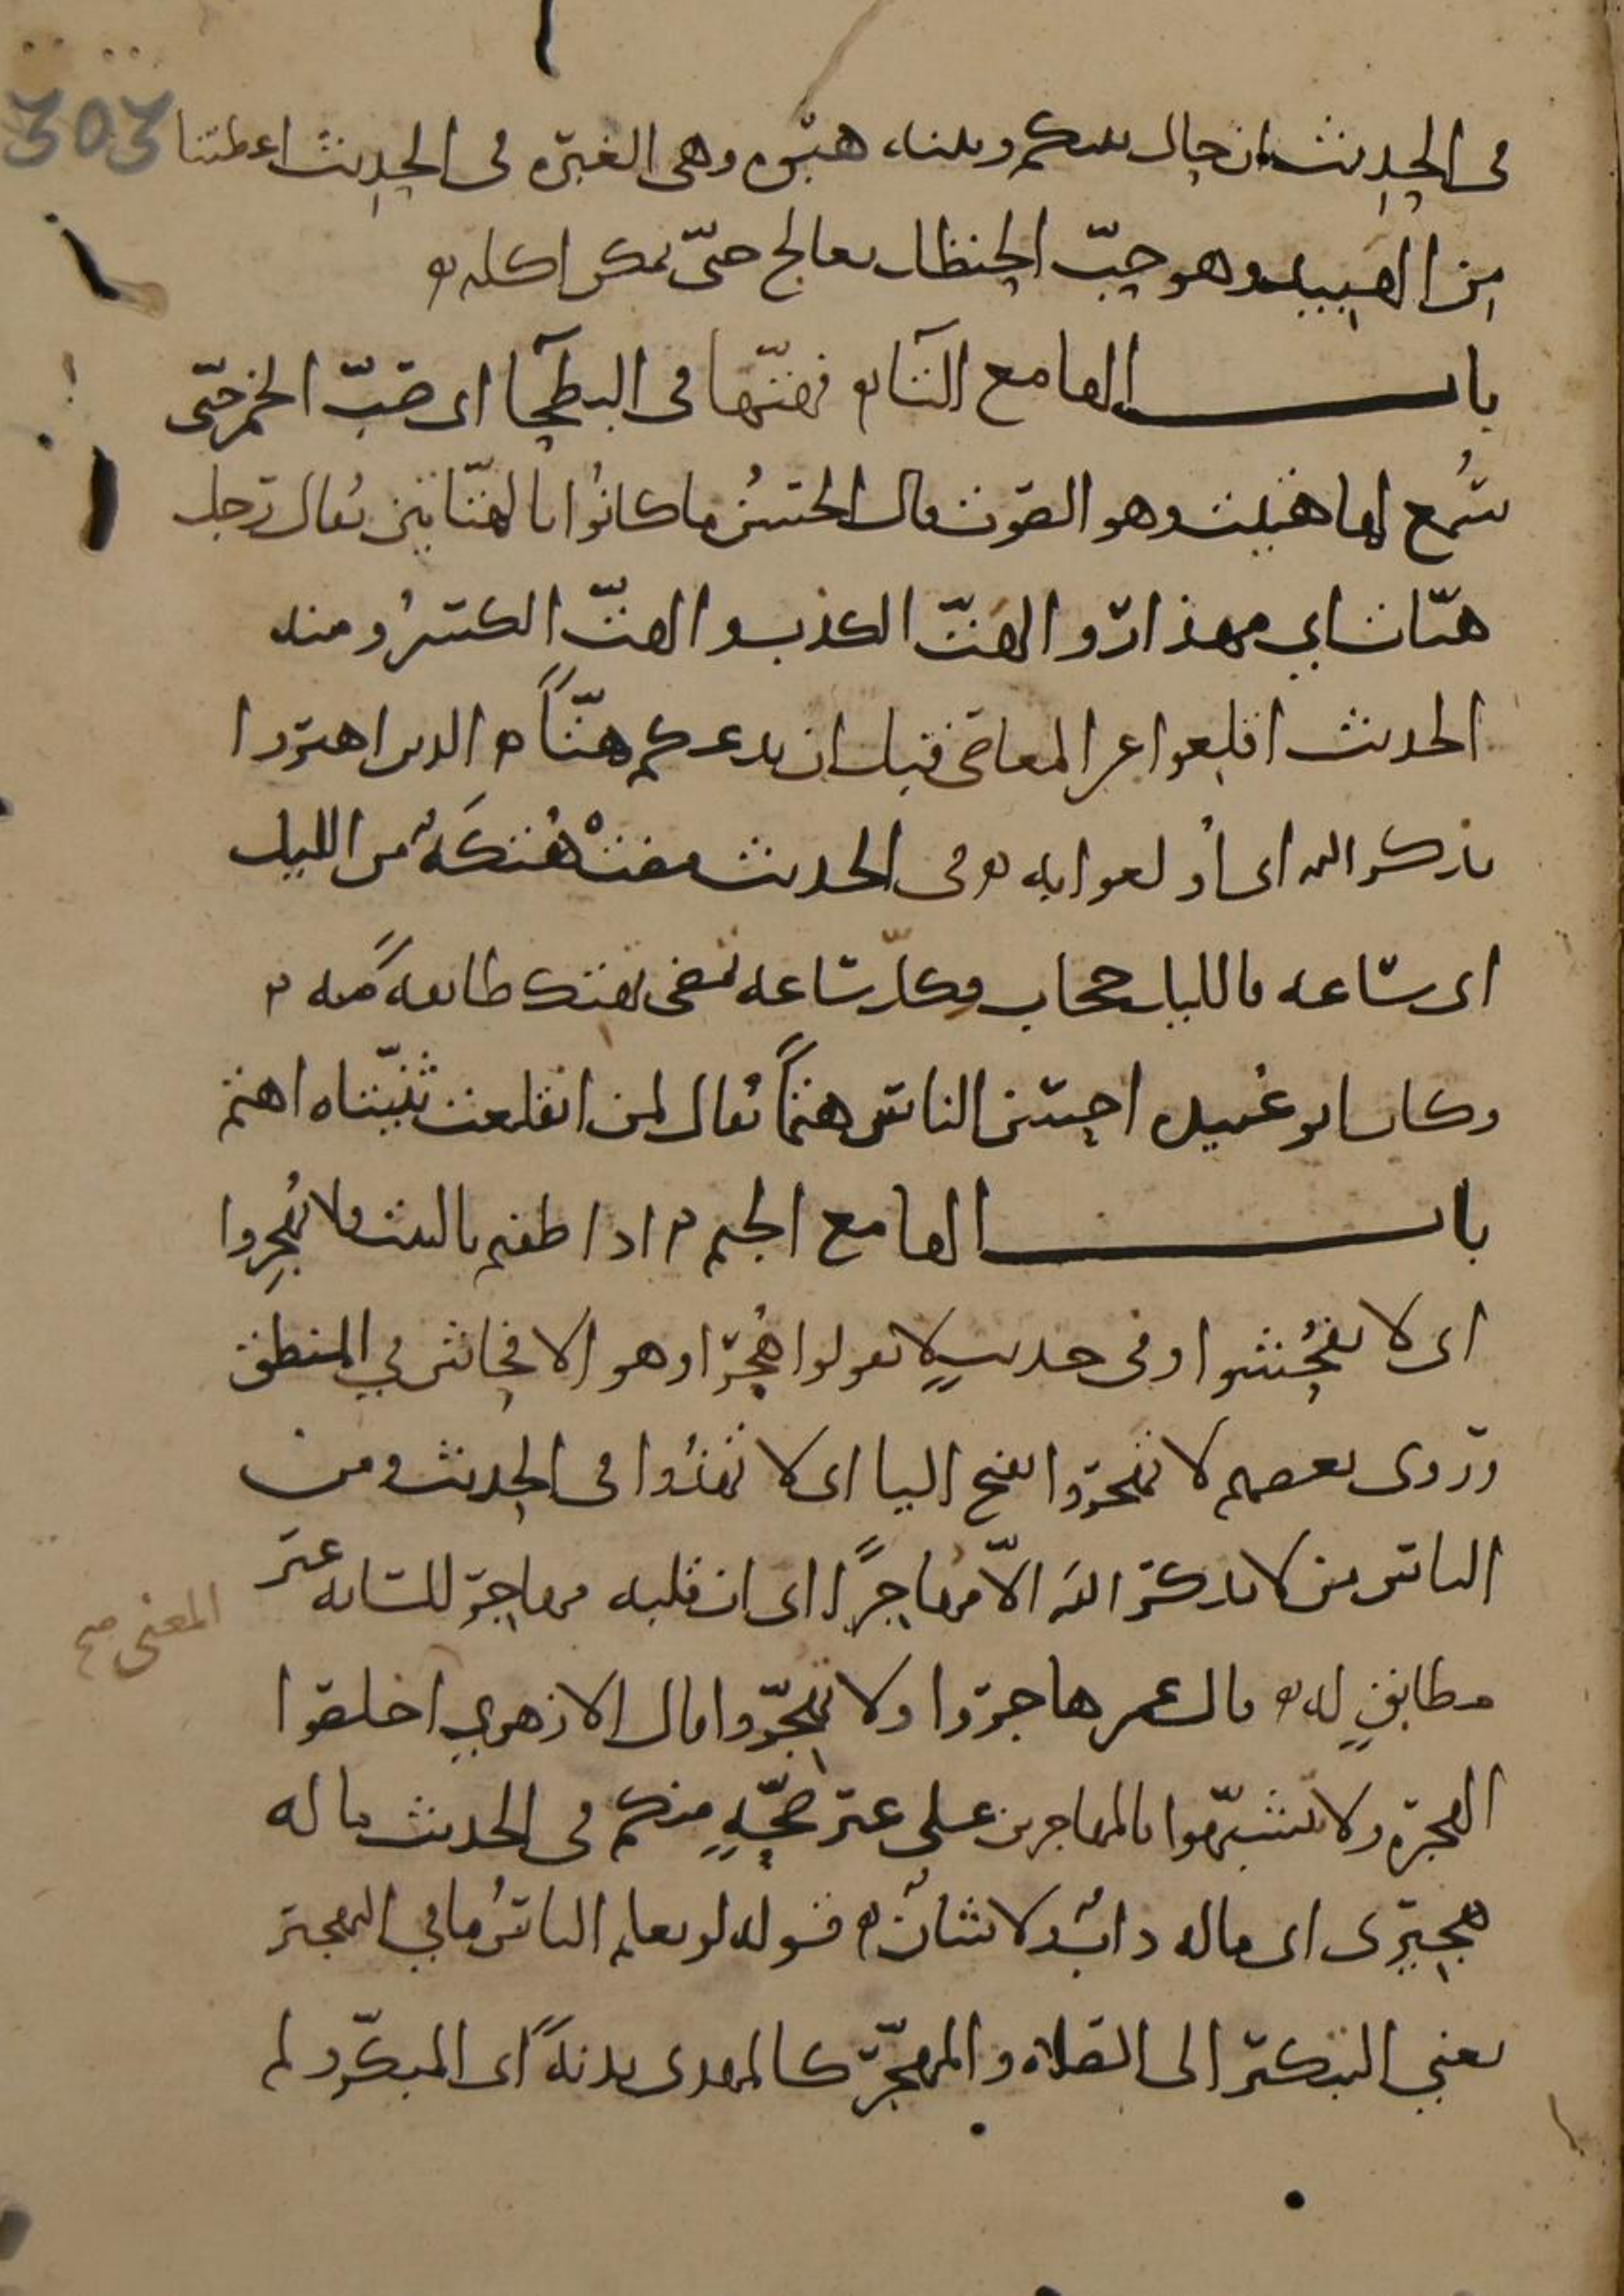 303
في الحديث ان حال بينكم وبينه هبوة وهي الغبرة في الحديث اعطتنا
من الهبيد وهو حبّ الحنظل يعالج حتّى يمكن اكله
باب الها مع التاء فهتّها في البطحآ اي صَبّ الخمر حتّى
سُمع لها هتيت وهو الصوت قال الحسن ما كانوا بالهتّاتين يُقال رجل
هتّات اي مهذار والهَتّ الكذب والهتّ الكسر ومنه
الحديث اقلعوا عن المعاصي قبل ان يدعكم هتّاً الذين اهتروا
بذكر الله اي اُولعوا به في الحديث مضتْ هُتكَةٌ من الليل
اي ساعه فالليل حجاب وكلّ ساعه تمضي تهتك طائفةً منه
وكان ابو عبيده احسن الناس هتماً يقال لمن انقلعت ثنيّتاه اهتم
باب الها مع الجيم اذا طفتم بالبيت فلا تُهجِروا
اي لا تفحُشوا وفي حديثٍ لا تقولوا هُجرا وهو الافحاش في المنطق
وروى بعضهم لا تهجروا بفتح التا اي لا تهذُوا في الحديث ومن
الناس من لا يذكر الله الّا مُهاجرًا اي ان قلبه مهاجر للسانه غير
المعنى صح
مطابقٍ له قال عمر هاجروا ولا تهجّروا قال الازهري اخلصوا
الهجرة ولا تتشبّهوا بالمهاجرين على غير صحّةٍ منكم في الحديث ماله
هجيرى اي ماله دابٌ ولا شأن قوله لو يعلم الناسُ ما في التهجير
يعني التبكير الى الصلاة والمهجّر كالمهدى بدنةً اي المبكّر ولم